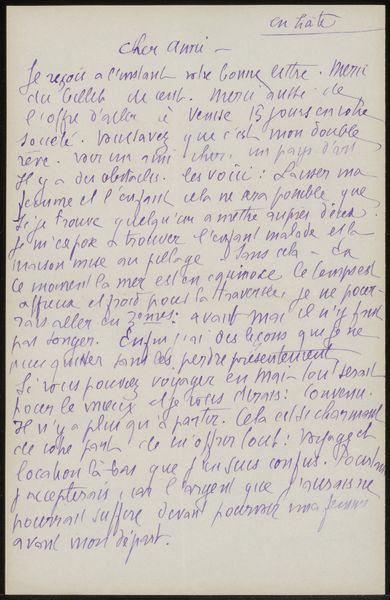 en hâte
cher ami –
Je reçois a l'instant votre bonne lettre. Merci
du billet de cent. Merci aussi de
l'offre d'aller à Venise 15 jours en votre
société. Vous savez que c'est mon double
rêve. Voir un ami cher, un pays d'art
Il y a des obstacles. les voici : Laisser ma
femme et l'enfant cela ne sera possible que
si je trouve quelqu'un a mettre auprès d'eux.
Je m'expose a trouver l'enfant malade et la
maison mise au pillage sans cela – En
ce moment la mer est en equinoxe le temps est
affreux et froid pour la traversée, je ne pour-
rais aller en avant mai il n'y faut
pas songer. Enfin j'ai des leçons que je ne
puis quitter sans les perdre présentement
Si vous pouviez voyager en Mai – tout serait
pour le mieux et je vous dirais : convenu.
Il n'y a plus qu'à partir. Cela est si charmant
de votre part de m'offrir tout : voyage et
location là-bas que j'en suis confus. Pourtant
j'accepterais, car l'argent que j'aurais ne
pourrait suffire devant pourvoir ma femme
avant mon départ.